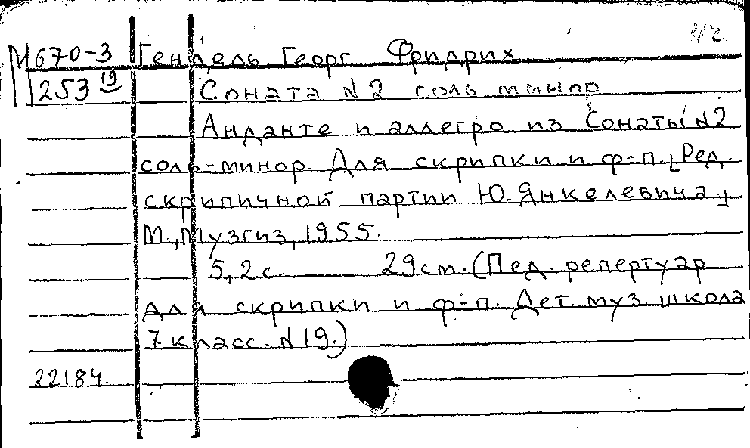 М670-3 Гендель Георг Фридрих
253 19 Соната N2 соль минор
Анданте и аллегро из Сонаты N2
соль-минор. Для скрипки и ф-п. [Ред.
скрипичной партии Ю. Янкелевича]
М., Музгиз, 1955.
5, 2с. 29см. (Пед. репертуар
для скрипки и ф-п. Дет. муз. школа
7 класс. N19.)
22184